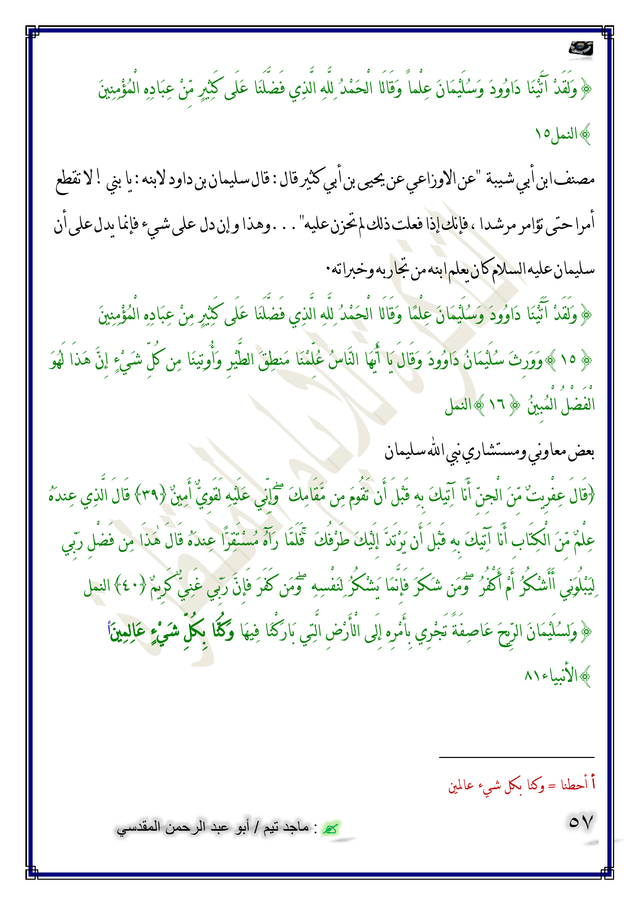 ﴿ وَلَقَدْ آتَيْنَا دَاوُودَ وَسُلَيْمَانَ عِلْماً وَقَالَا الْحَمْدُ لِلَّهِ الَّذِي فَضَّلَنَا عَلَى كَثِيرٍ مِّنْ عِبَادِهِ الْمُؤْمِنِينَ
﴾النمل١٥
مصنف ابن أبي شيبة "عن الاوزاعي عن يحيى بن أبي كثير قال : قال سليمان بن داود لابنه : يا بني ! لا تقطع
أمرا حتى تؤامر مرشدا ، فإنك إذا فعلت ذلك لم تحزن عليه" . . .وهذا وإن دل على شيء فإنما يدل على أن
سليمان عليه السلام كان يعلم ابنه من تجاربه وخبراته.
﴿ وَلَقَدْ آتَيْنَا دَاوُودَ وَسُلَيْمَانَ عِلْمًا وَقَالَا الْحَمْدُ لِلَّهِ الَّذِي فَضَّلَنَا عَلَى كَثِيرٍ مِنْ عِبَادِهِ الْمُؤْمِنِينَ
﴿ ١٥ ﴾ وَوَرِثَ سُلَيْمَانُ دَاوُودَ وَقَالَ يَا أَيُّهَا النَّاسُ عُلِّمْنَا مَنطِقَ الطَّيْرِ وَأُوتِينَا مِن كُلِّ شَيْءٍ إِنَّ هَذَا لَهُوَ
الْفَضْلُ الْمُبِينُ ﴿ ١٦ ﴾ النمل
بعض معاوني ومستشاري نبي الله سليمان
﴿قَالَ عِفْرِيتٌ مِّنَ الْجِنِّ أَنَا آتِيكَ بِهِ قَبْلَ أَن تَقُومَ مِن مَّقَامِكَ ۖ وَإِنِّي عَلَيْهِ لَقَوِيٌّ أَمِينٌ ﴿٣٩﴾ قَالَ الَّذِي عِندَهُ
عِلْمٌ مِّنَ الْكِتَابِ أَنَا آتِيكَ بِهِ قَبْلَ أَن يَرْتَدَّ إِلَيْكَ طَرْفُكَ ۚ فَلَمَّا رَآهُ مُسْتَقِرًّا عِندَهُ قَالَ هَٰذَا مِن فَضْلِ رَبِّي
لِيَبْلُوَنِي أَأَشْكُرُ أَمْ أَكْفُرُ ۖ وَمَن شَكَرَ فَإِنَّمَا يَشْكُرُ لِنَفْسِهِ ۖ وَمَن كَفَرَ فَإِنَّ رَبِّي غَنِيٌّ كَرِيمٌ ﴿٤٠﴾ النمل
﴿ وَلِسُلَيْمَانَ الرِّيحَ عَاصِفَةً تَجْرِي بِأَمْرِهِ إِلَى الْأَرْضِ الَّتِي بَارَكْنَا فِيهَا وَكُنَّا بِكُلِّ شَيْءٍ عَالِمِينَ أ
﴾الأنبياء٨١
أ أحطنا = وكنا بكل شيء عالمين
٥٧
: ماجد تيم / أبو عبد الرحمن المقدسي